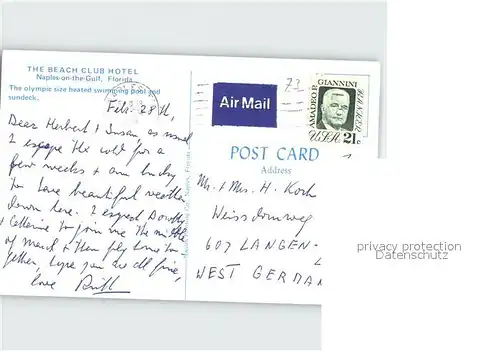 THE BEACH CLUB HOTEL
Naples-on-the-Gulf, Florida
The olympic size heated swimming pool and
sundeck.
Feb. 28th,
Dear Herbert + Susan as usual
I escape the cold for a
few weeks + am lucky
to have beautiful weather
down here. I expect Dorothy
+ Catherine to join me the middle
of march + then fly home to-
gether, hope you are all fine,
love Ruth
73
Air Mail
AMADEO P. GIANNINI
BANKER
USA 21c
POST CARD
Address
Mr. + Mrs. H. Koch
Weissdornweg
607 LANGEN-
WEST GERMAN
privacy protection
Datenschutz